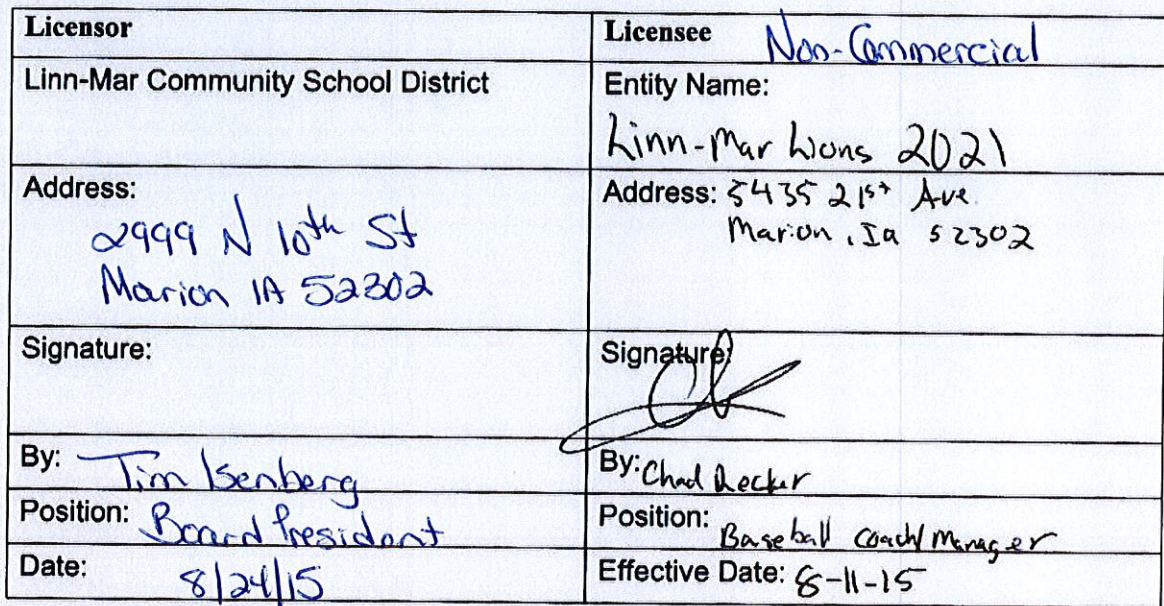 Licensor
Licensee Non-Commercial
Linn-Mar Community School District
Entity Name:
Linn-Mar Lions 2021
Address:
2999 N 10th St
Marion IA 52302
Address: 5435 21st Ave
Marion, Ia 52302
Signature:
Signature:
By: Tim Isenberg
By: Chad
Position: Board President
Position: Baseball coach/Manager
Date: 8/24/15
Effective Date: 8-11-15